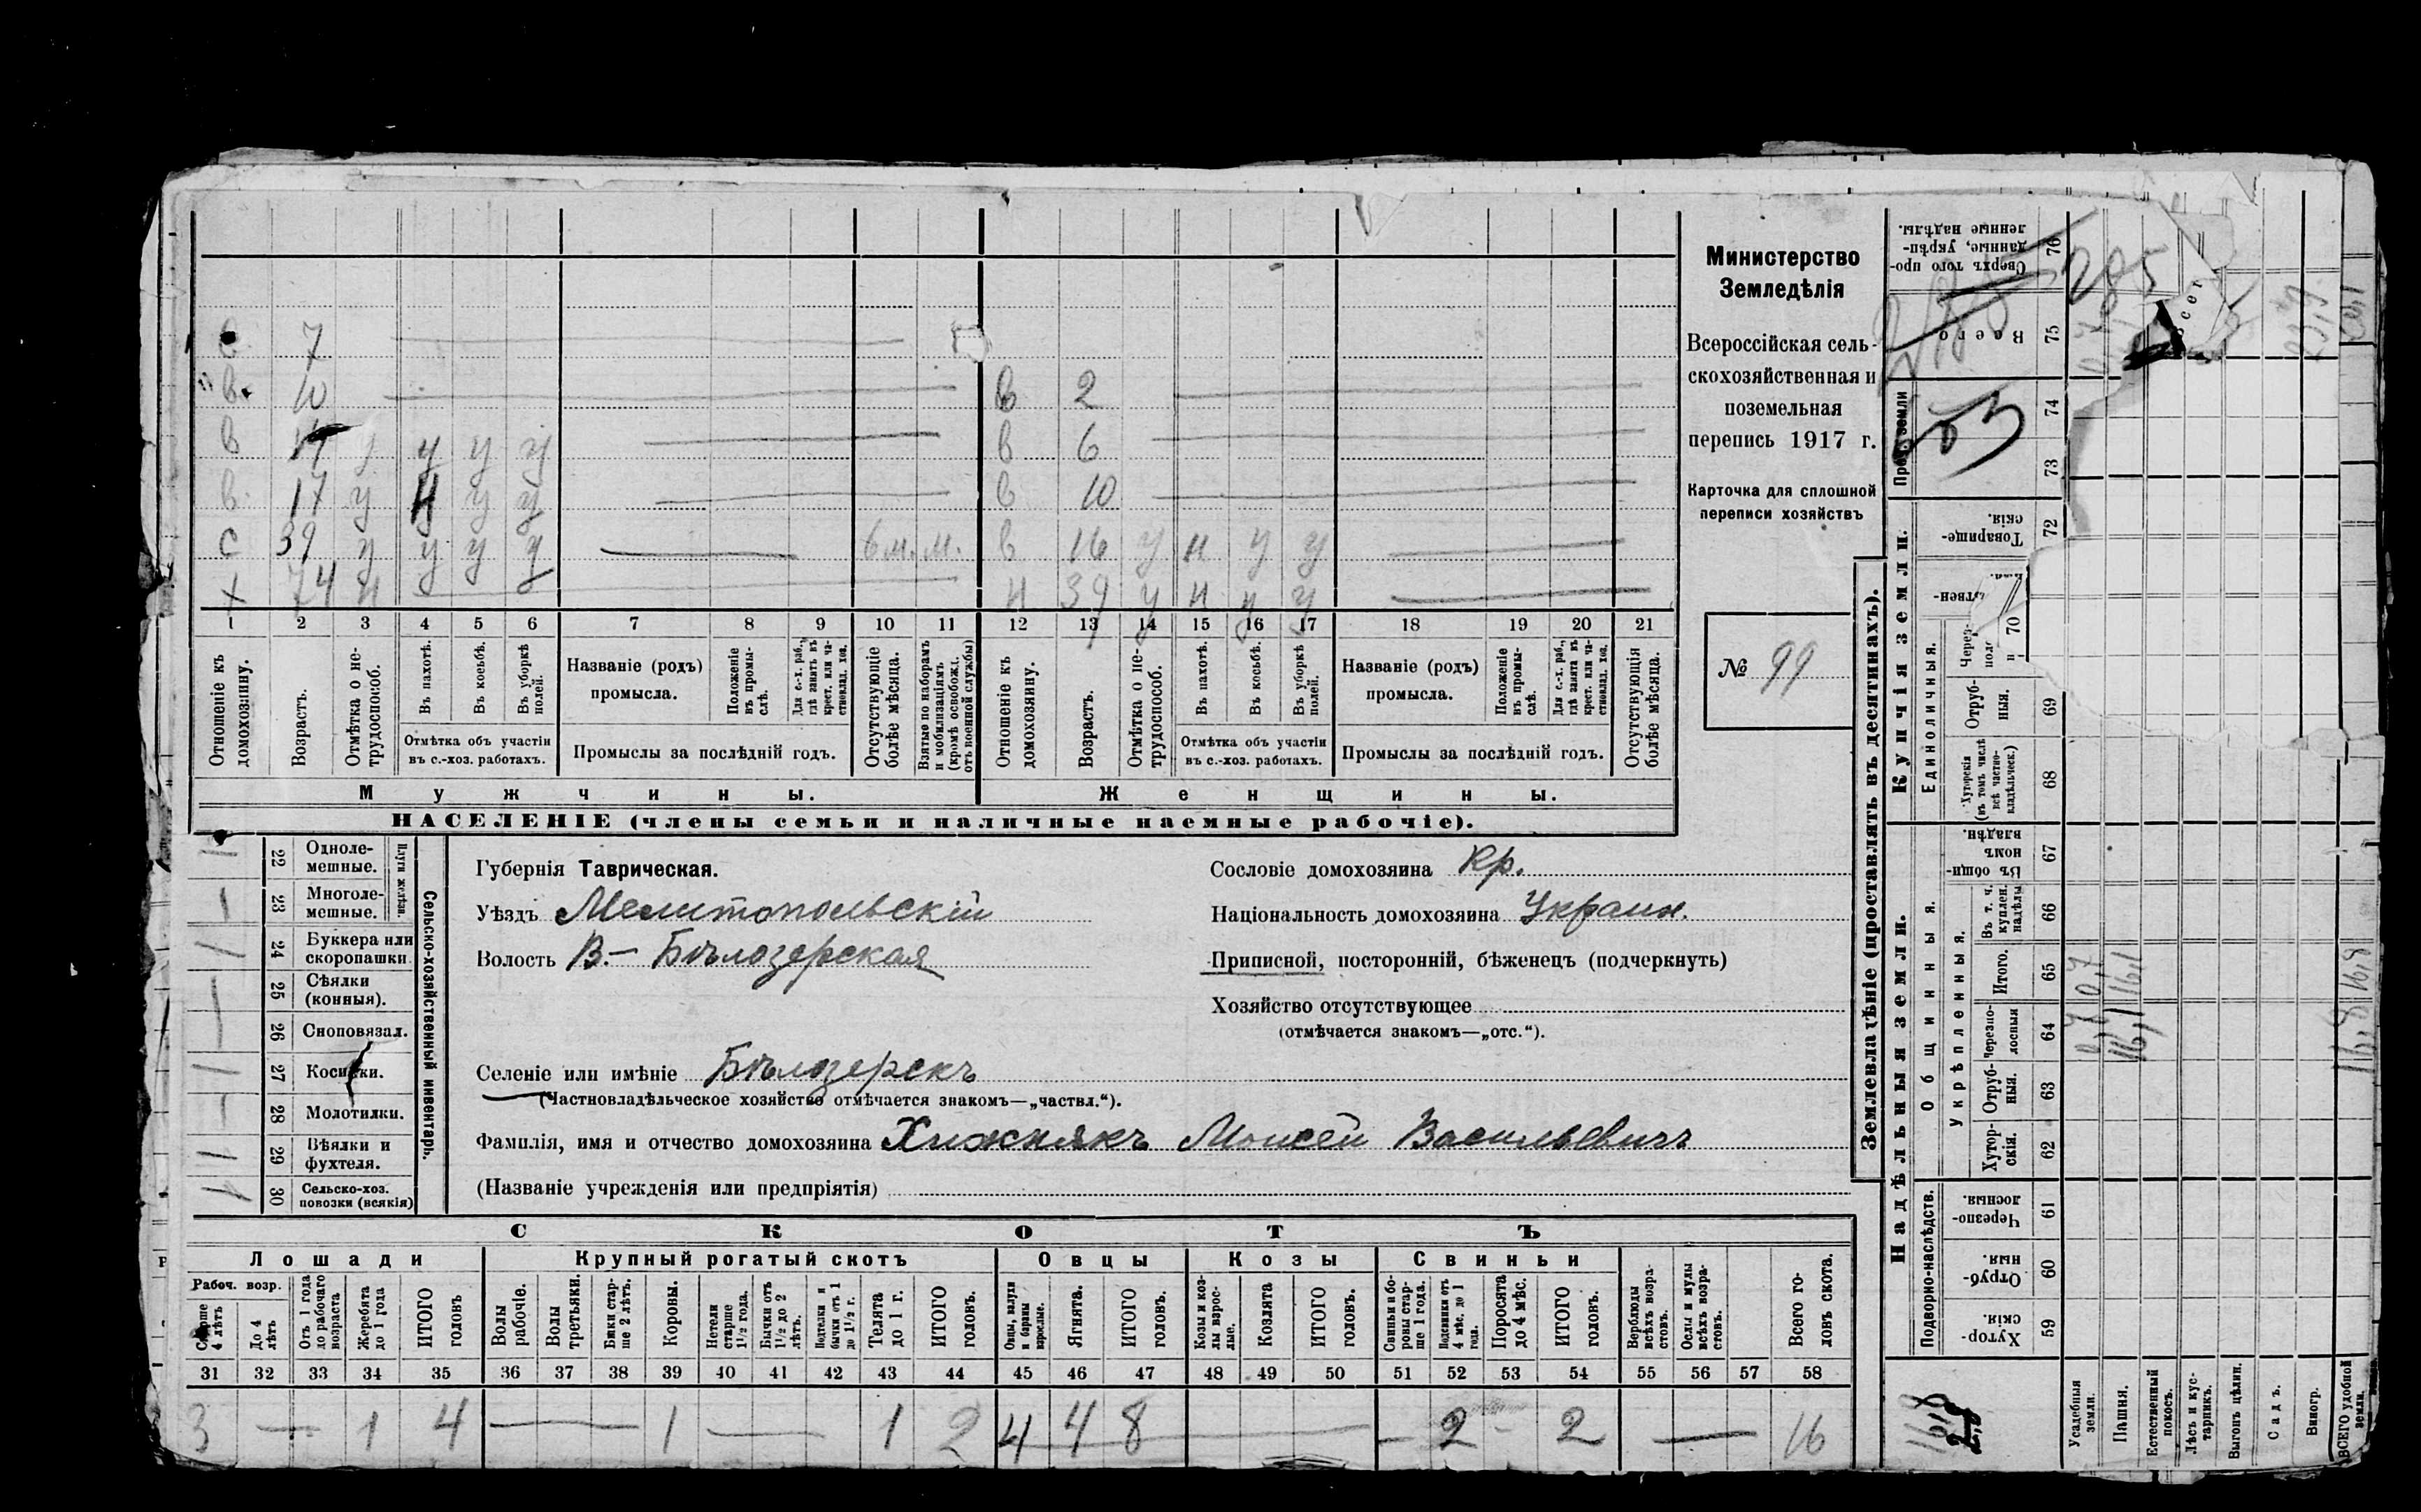 Министерство
Земледѣлія
Всероссійская сель-
скохозяйственная и
поземельная
перепись 1917 г.
Карточка для сплошной
переписи хозяйствъ
№ 99
7
в. 10 в 2
в у у у у в 6
в. 17 у н у у в 10
с 39 у у у у 6 м. м. в 16 у н у у
х 74 н н 39 у н у у
1 2 3 4 5 6 7 8 9 10 11 12 13 14 15 16 17 18 19 20 21
Отношеніе къ домохозяину.
Возрастъ.
Отмѣтка о не-трудоспособ.
Въ пахотѣ.
Въ косьбѣ.
Въ уборкѣ полей.
Отмѣтка объ участіи
въ с.-хоз. работахъ.
Названіе (родъ)
промысла.
Положеніе въ промы-слѣ.
Для с.-х. раб., гдѣ занятъ въ крест. или ча-стновлад. хоз.
Промыслы за послѣдній годъ.
Отсутствующіе болѣе мѣсяца.
Взятые по наборамъ и мобилизаціямъ (кромѣ освобожд. отъ военной службы)
Отношеніе къ домохозяину.
Возрастъ.
Отмѣтка о не-трудоспособ.
Въ пахотѣ.
Въ косьбѣ.
Въ уборкѣ полей.
Отмѣтка объ участіи
въ с.-хоз. работахъ.
Названіе (родъ)
промысла.
Положеніе въ промы-слѣ.
Для с.-х. раб., гдѣ занята въ крест. или ча-стновлад. хоз.
Промыслы за послѣдній годъ.
Отсутствующія болѣе мѣсяца.
Мужчины. Женщины.
НАСЕЛЕНІЕ (члены семьи и наличные наемные рабочіе).
Сельско-хозяйственный инвентарь.
Плуги желѣзн.
22 Одноле-мешные.
23 Многоле-мешные.
24 Буккера или скоропашки
25 Сѣялки (конныя).
26 Сноповязал.
27 Косилки.
28 Молотилки.
29 Вѣялки и фухтеля.
30 Сельско-хоз. повозки (всякія)
Губернія Таврическая.
Уѣздъ Мелитопольскій
Волость В.- Бѣлозерская
Сословіе домохозяина Кр.
Національность домохозяина Украин.
Приписной, посторонній, бѣженецъ (подчеркнуть)
Хозяйство отсутствующее
(отмѣчается знакомъ—„отс.“).
Селеніе или имѣніе Бѣлозерскъ
(Частновладѣльческое хозяйство отмѣчается знакомъ—„частвл.“).
Фамилія, имя и отчество домохозяина Хижнякъ Моисей Васильевичъ
(Названіе учрежденія или предпріятія)
СКОТЪ
Лошади Крупный рогатый скотъ Овцы Козы Свиньи
Рабоч. возр.
Старше 4 лѣтъ
До 4 лѣтъ
Отъ 1 года до рабочаго возраста
Жеребята до 1 года
ИТОГО головъ
Волы рабочіе.
Волы третьяки.
Быки стар-ше 2 лѣтъ.
Коровы.
Нетели старше 1½ года.
Бычки отъ 1½ до 2 лѣтъ.
Подтелки и бычки отъ 1 до 1½ г.
Телята до 1 г.
ИТОГО головъ.
Овцы, валухи и бараны взрослые.
Ягнята.
ИТОГО головъ.
Козы и коз-лы взрос-лые.
Козлята
ИТОГО головъ.
Свиньи и бо-ровы стар-ше 1 года.
Подсвинки отъ 4 мѣс. до 1 года.
Поросята до 4 мѣс.
ИТОГО головъ.
Верблюды всѣхъ возра-стовъ.
Ослы и мулы всѣхъ возра-стовъ.
Всего го-ловъ скота.
31 32 33 34 35 36 37 38 39 40 41 42 43 44 45 46 47 48 49 50 51 52 53 54 55 56 57 58
3 — 1 4 — 1 — 1 2 4 4 8 — 2 - 2 — 16
Землевладѣніе (проставлять въ десятинахъ).
Купчія земли.
Надѣльныя земли.
Единоличныя.
Общинныя.
Укрѣпленныя.
Подворно-наслѣдств.
Сверхъ того про-данные, укрѣп-ленные надѣлы. 76
Всего 75
74
73
Товарище-скія. 72
70
Отруб-ныя. 69
Хуторскія (въ томъ числѣ всѣ частно-владѣльческ.) 68
Въ общи-номъ владѣн. 67
Въ т. ч. куплен. надѣлы 66
Итого. 65
Черезпо-лосныя 64
Отруб-ныя. 63
Хутор-скія. 62
Черезпо-лосныя. 61
Отруб-ныя. 60
Хутор-скія. 59
285
0,7 0,7
16,1 16,1
16,8 16,8
16,8
Усадебныя земли.
Пашня.
Естественный покосъ.
Лѣсъ и кус-тарникъ.
Выгонъ цѣлин.
Садъ.
Виногр.
ВСЕГО удобной земли.